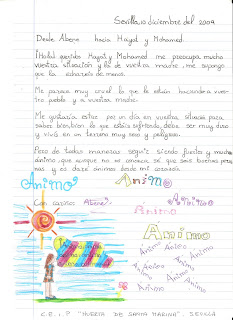 Sevilla, 10 diciembre del 2009
Desde Abene hacia Hayat y Mohamed.
¡Hola! queridos Hayat y Mohamed me preocupa mucho
vuestra situación y la de vuestra madre, me supongo
que la echaréis de menos.
Me parece muy cruel lo que le están haciendo a vues-
tro pueblo y a vuestra madre.
Me gustaría estar por un día en vuestra situación para
saber bien, bien lo que estáis sufriendo, debe ser muy duro
y vivir en un terreno muy seco y peligroso.
Pero de todas maneras seguir siendo fuertes y mucho
ánimo, que aunque no os conozca sé que sois fuertes perso-
nas y os daré ánimos desde mi corazón.
Animo
Animo
Con cariño: Abene
Animo
Animo
Animo
Animo
Animo
Animo
Animo
Animo
Animo
Animo
Animo
Animo
C.E.I.P "HUERTA DE SANTA MARINA". SEVILLA